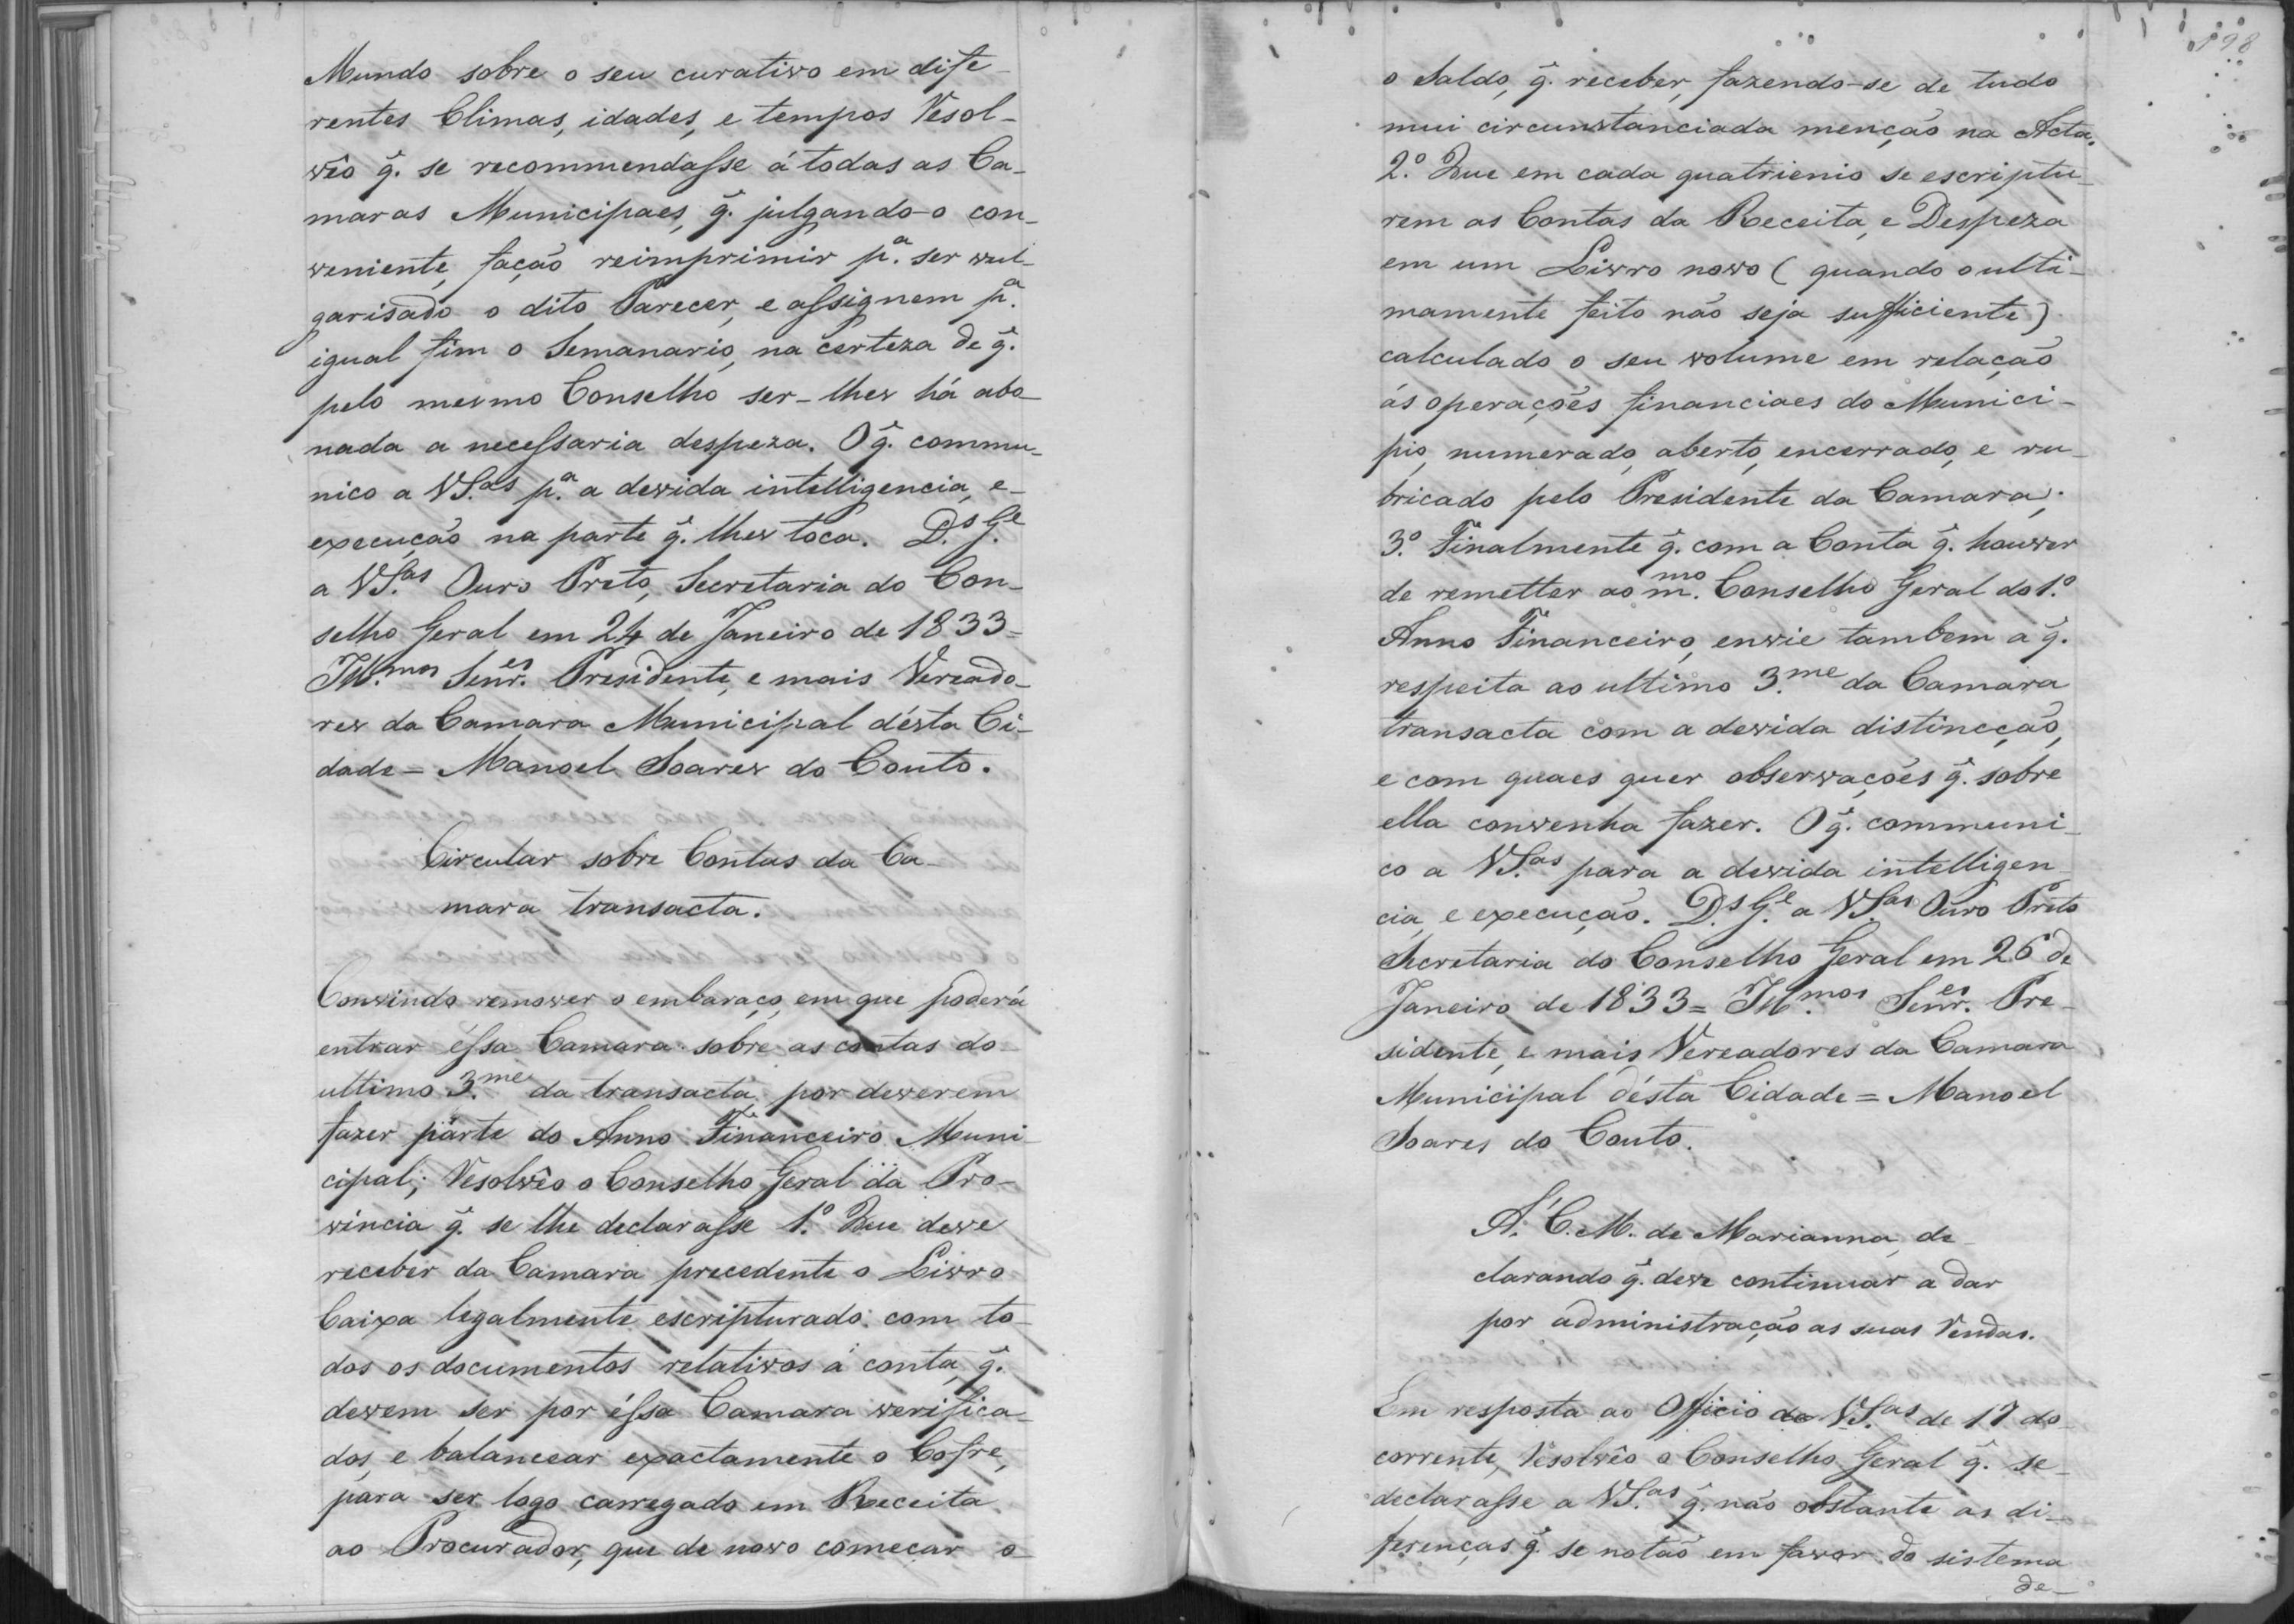 Mundo sobre o seu curativo em dife-
rentes Climas, idades, e tempos Resol-
vêo q̃. se recommendasse á todas as Ca-
maras Municipaes, q̃. julgando-o con-
veniente, fação reimprimir p.ª ser vul-
garisado o dito Parecer, e assignem p.ª
igual fim o Semanario, na certeza de q̃.
pelo mesmo Conselho ser-lhes há abo-
nada a necessaria despeza. O q̃. commu-
nico a VS.as p.ª a devida intelligencia, e-
execução na parte q̃. lhes toca. D.s G.e
a VS.as Ouro Preto, Secretaria do Con-
selho Geral em 24 de Janeiro de 1833=
Ill.mos Senr.es Presidente, e mais Vereado-
res da Camara Municipal désta Ci-
dade= Manoel Soares do Couto.
Circular sobre Contas da Ca-
mara transacta.
Convindo remover o embaraço, em que poderá
entrar éssa Camara sobre as contas do
ultimo 3.me da transacta, por deverem
fazer parte do Anno Financeiro Muni-
cipal; Resolvêo o Conselho Geral da Pro-
vincia q̃. se lhe declarasse 1.º Que deve
receber da Camara precedente o Livro
Caixa legalmente escripturado com to-
dos os documentos relativos á conta, q̃.
devem ser por éssa Camara verifica-
dos, e balancear exactamente o Cofre,
para ser logo carregado em Receita
ao Procurador, que de novo começar o-
198
o Saldo, q̃. receber, fazendo-se de tudo
mui circunstanciada menção na Acta.
2.º Que em cada quatrienio se escriptu-
rem as Contas da Receita, e Despeza
em um Livro novo (quando o ulti-
mamente feito não seja sufficiente)
calculado o seu volume em relação
ás operações financiaes do Munici-
pio, numerado, aberto, encerrado, e ru-
bricado pelo Presidente da Camara;
3.º Finalmente q̃. com a Conta q̃. houver
de remetter ao m.mo Conselho Geral do 1.º
Anno Financeiro, envie tambem a q̃.
respeita ao ultimo 3.me da Camara
transacta com a devida distincção,
e com quaes quer observações q̃. sobre
ella convenha fazer. O q̃. communi-
co a VS.as para a devida intelligen-
cia, e execução. D.s G.e a VS.as Ouro Preto
Secretaria do Conselho Geral em 26 de
Janeiro de 1833= Ill.mos Senr.es Pre-
sidente, e mais Vereadores da Camara
Municipal désta Cidade= Manoel
Soares do Couto.
A' C. M. de Marianna, de-
clarando q̃. deve continuar a dar
por administração as suas Rendas.
Em resposta ao Officio de VS.as de 17 do
corrente, Resolvêo o Conselho Geral q̃. se-
declarasse a VS.as q̃. não obstante as di-
ferenças q̃. se notão em favor do sistema
de-